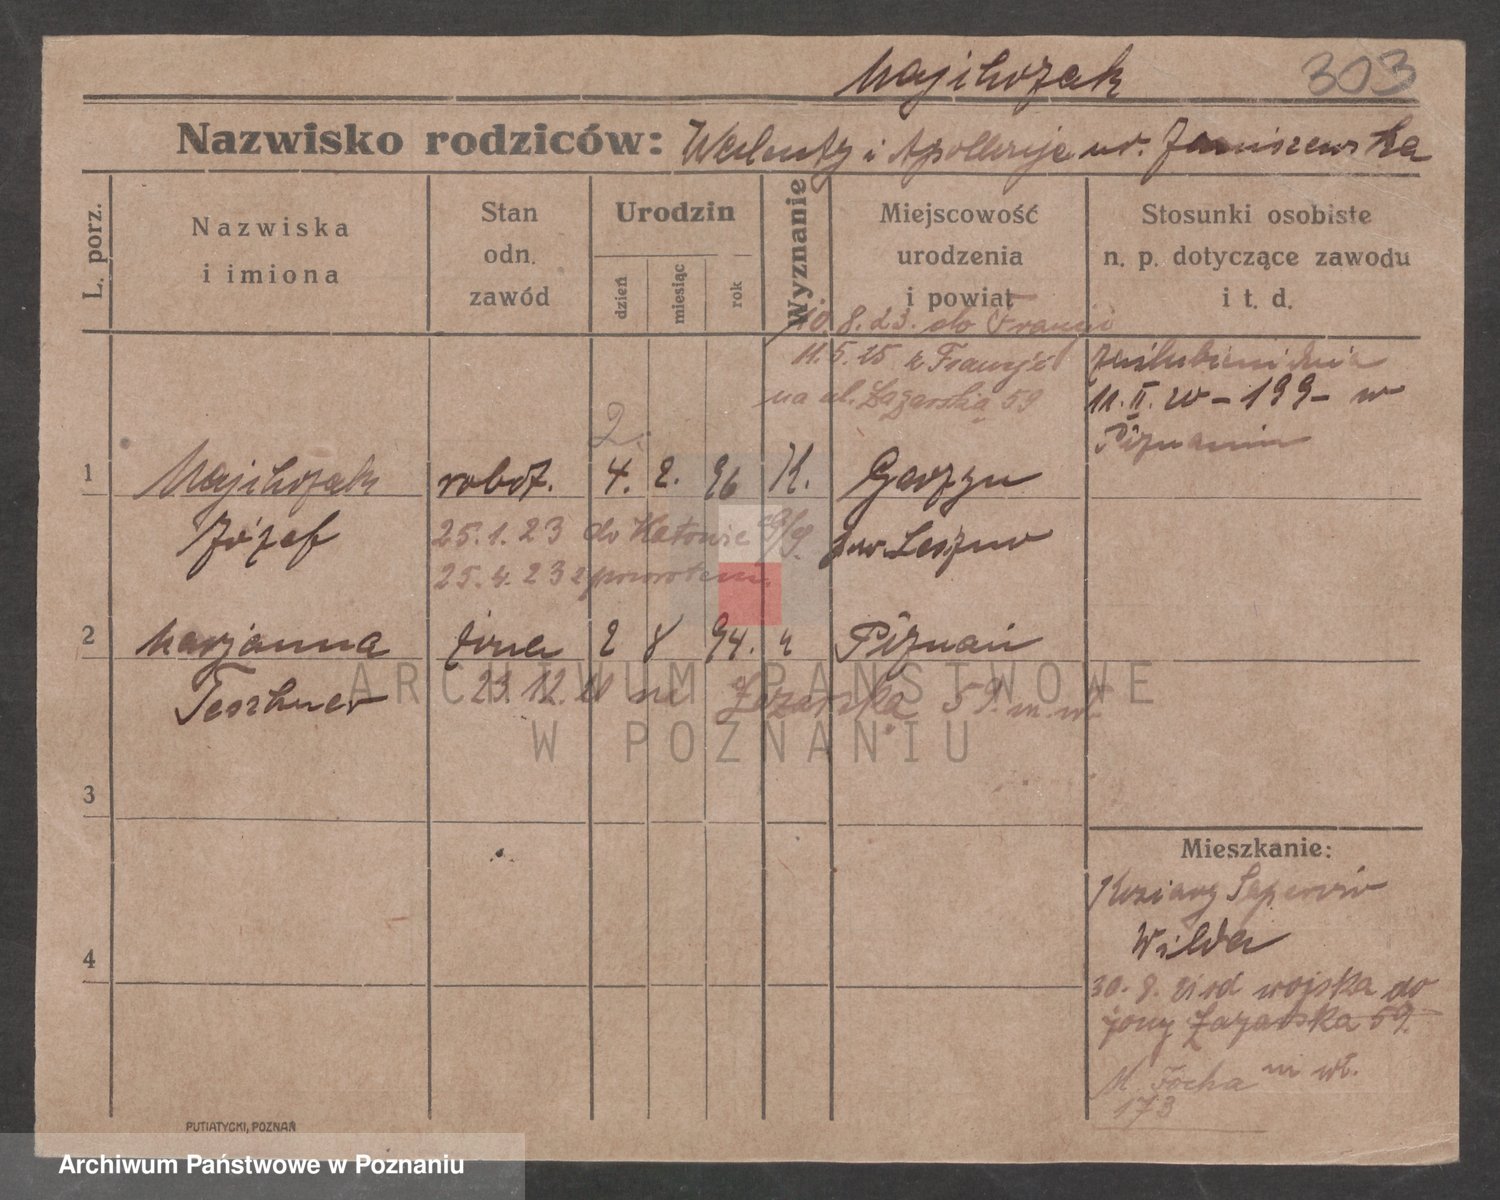 Majchrzak 303
Nazwisko rodziców: Walenty i Apollonja ur. Janiszewska
L. porz.
Nazwiska
i imiona
Stan
odn.
zawód
Urodzin
dzień
miesiąc
rok
Wyznanie
Miejscowość
urodzenia
i powiat
Stosunki osobiste
n. p. dotyczące zawodu
i t. d.
10.8.23. do Francji
11.5.25 z Francji
na ul. Łazarską 59
zaślubieni dnia
11. II. 20 - 199 - w
Poznaniu
2.
1 Majchrzak robot. 4. 2. 96 K.
Józef
pow. Leszno
25.1.23 do Katowic
25.4.23 z powrotem.
2 Marjanna żona 2 8 94. " Poznań
Teschner
23.12.21 Łazarska 59. m. wł.
3
4
Mieszkanie:
Koszary Saperów
Wilda
30.9.21 od wojska do
żony Łazarska 59.
M. Focha m wł.
173
PUTIATYCKI, POZNAŃ
ARCHIWUM PAŃSTWOWE
W POZNANIU
Archiwum Państwowe w Poznaniu